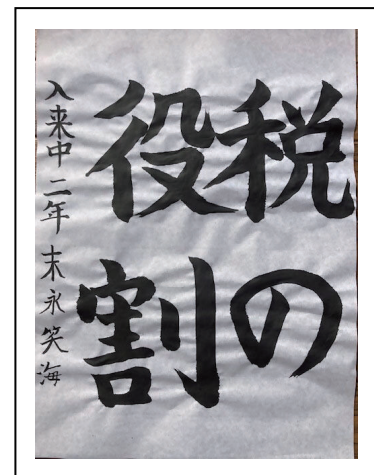 税の
役割
入来中二年 末永笑海